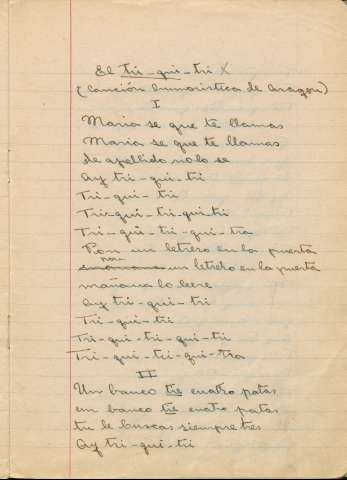 El tri-qui-tri X
(Canción humoristica de Aragon)
I
Maria se que te llamas
Maria se que te llamas
de apellido no lo se
Ay tri-qui-tri
Tri-qui-tri
Tri-qui-tri-qui-tri
Tri-qui-tri-qui-tra
Pon un letrero en la puerta
pon un letrero en la puerta
mañana lo leere
Ay tri-qui-tri
Tri-qui-tri
Tri-qui-tri-qui-tri
Tri-qui-tri-qui-tra
II
Un banco tie cuatro patas
un banco tie cuatro patas
tu le buscas siempre tres
Ay tri-qui-tri